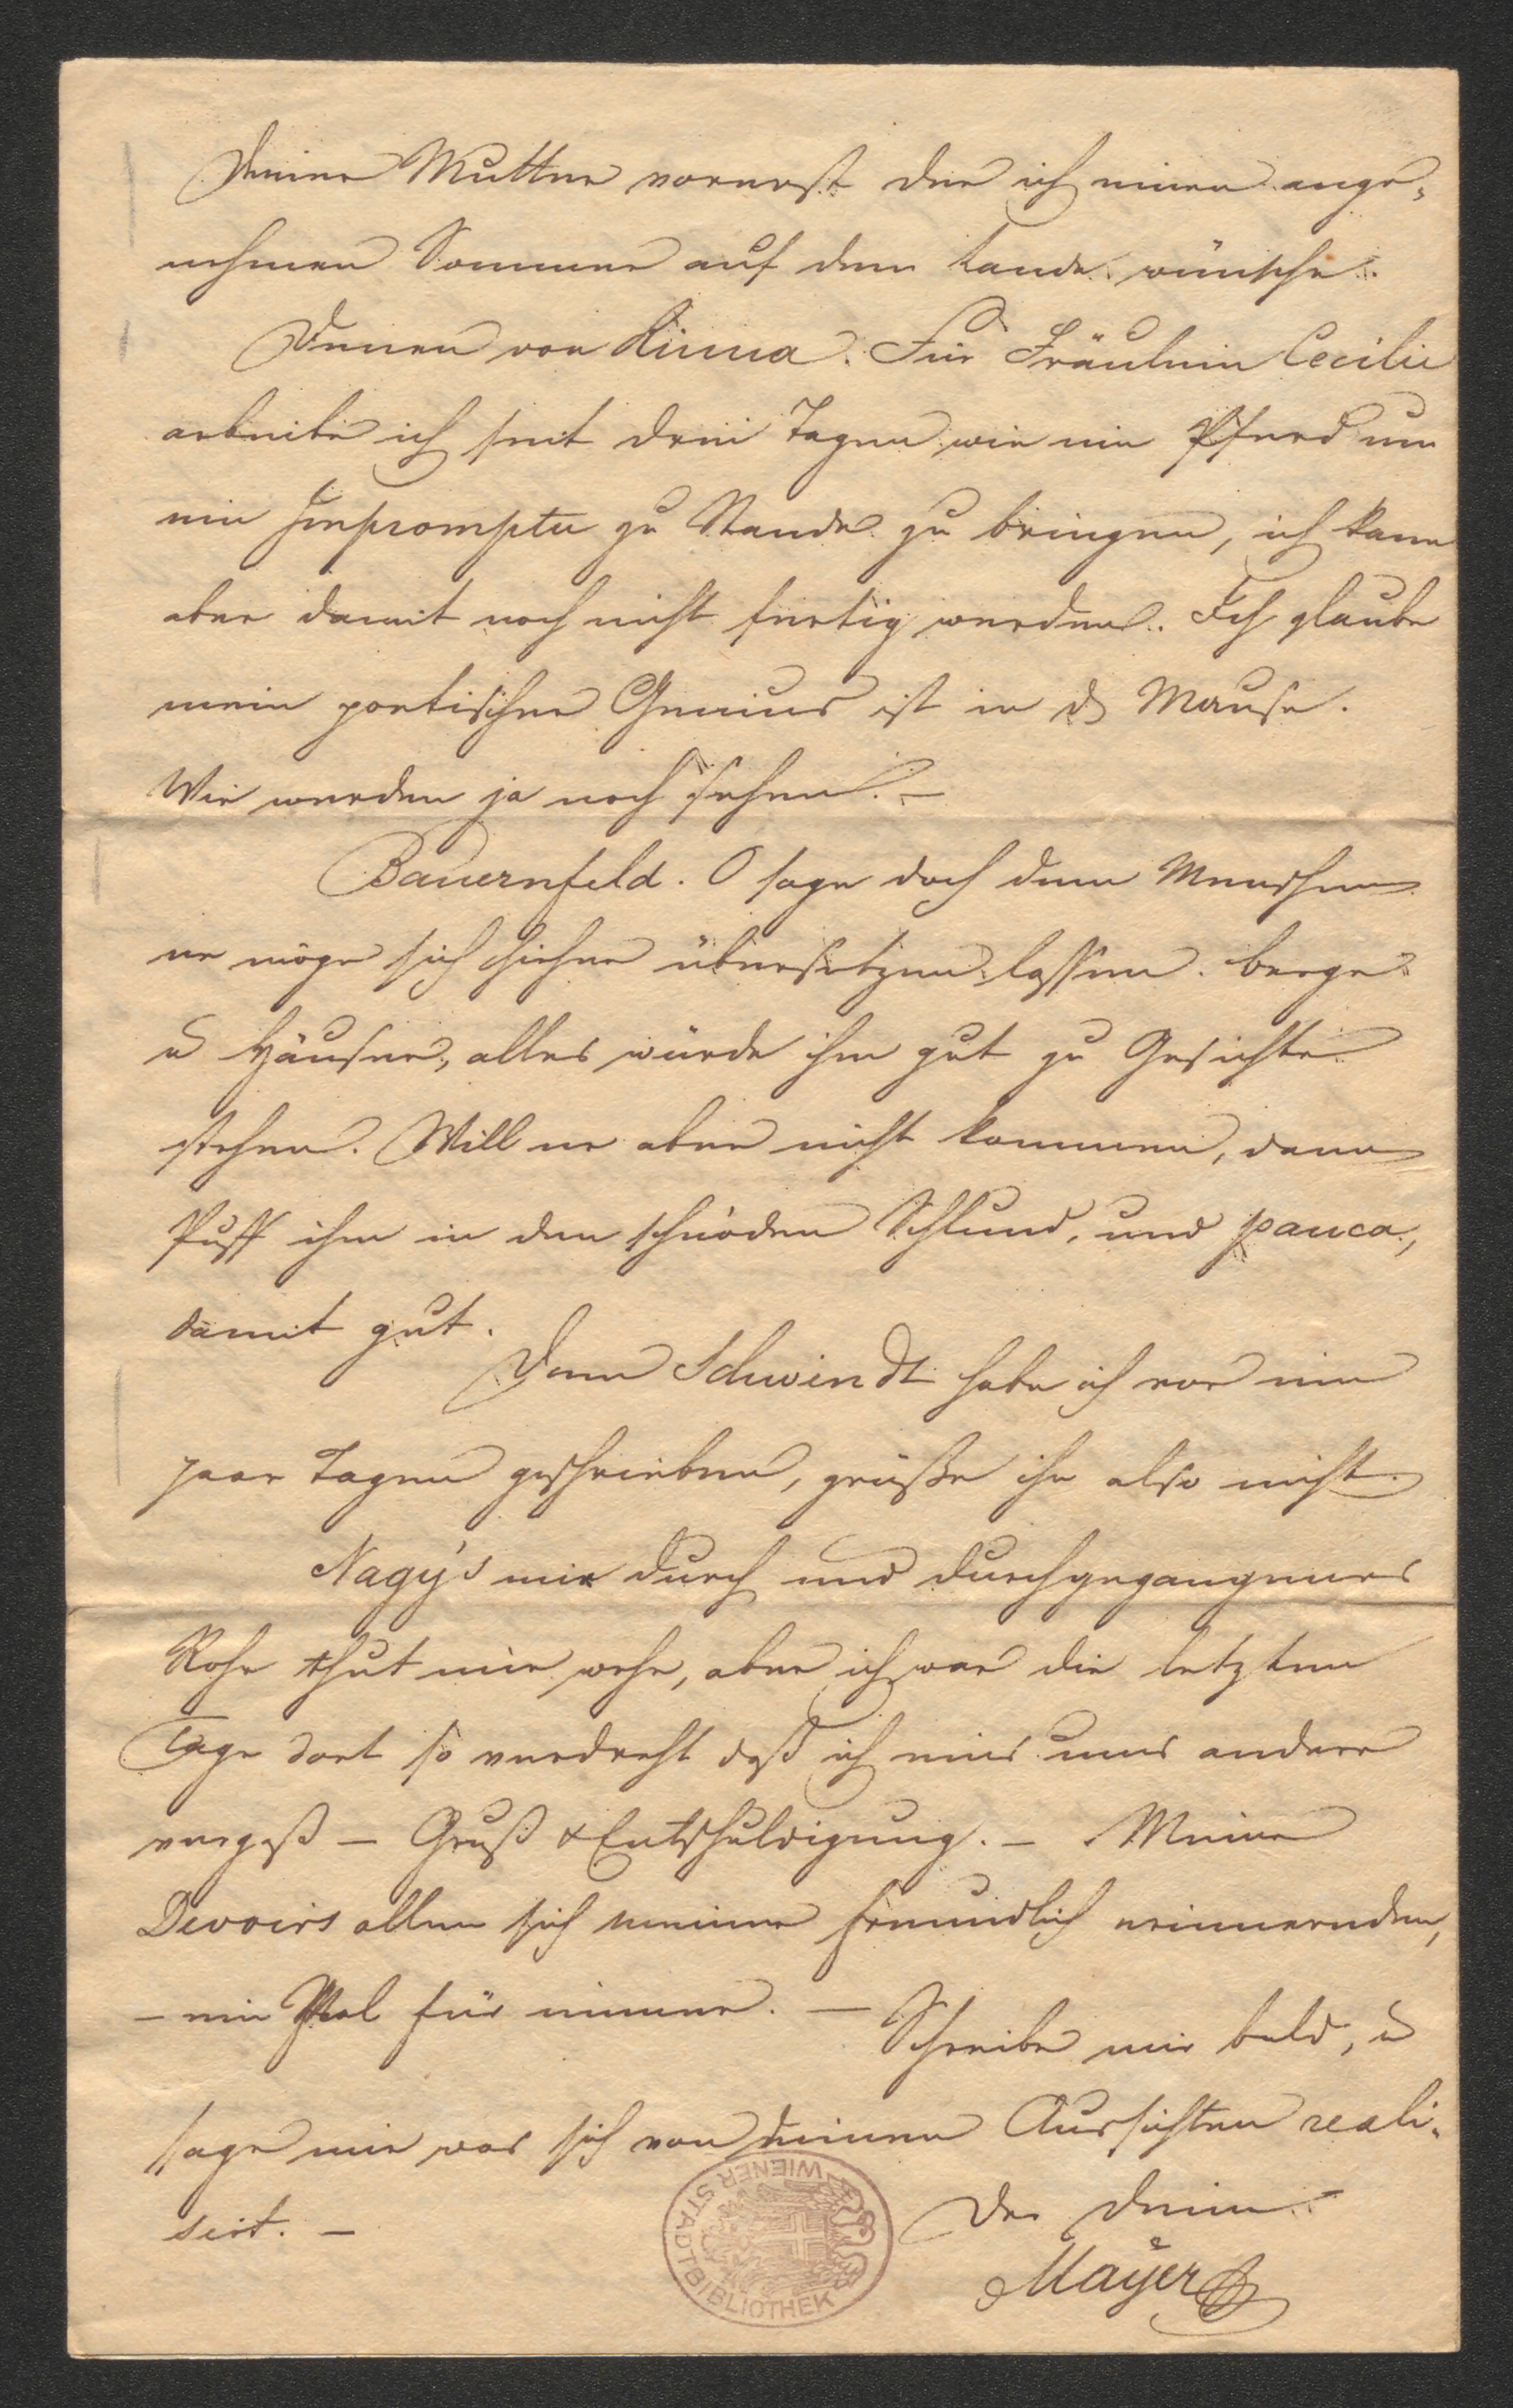 Deiner Mutter vorerst der ich einen ange-
nehmen Sommer auf dem Lande wünsche.
Denen von Rinna. Für Fräulein Cecilie
arbeite ich seit drei Tagen wie ein Pferd um
ein Impromptu zu Stande zu bringen, ich kann
aber damit noch nicht fertig werden. Ich glaube
mein poetischer Genius ist in d Mause.
Wir werden ja noch sehen. –
Bauernfeld. O sage doch dem Menschen
er möge sich hieher übersetzen lassen. Berge
u Häuser, alles würde ihm gut zu Gesichte
stehen. Will er aber nicht kommen, dann
Puff ihm in den schnöden Schlund, und pauca,
damit gut.
Dem Schwindt habe ich vor ein
paar Tagen geschrieben, grüße ihn also nicht.
Nagy's mir durch und durchgegangenes
Rohr thut mir wehe, aber ich war die letzten
Tage dort so verdreht daß ich eins ums andere
vergaß – Gruß & Entschuldigung. – Meine
Devoirs allen sich meiner freundlich erinnernden,
– ein Mal für immer. –
Schreibe mir bald, u
sage mir was sich von deinen Aussichten reali-
sirt. –
Der Deine
Mayer
WIENER STADTBIBLIOTHEK